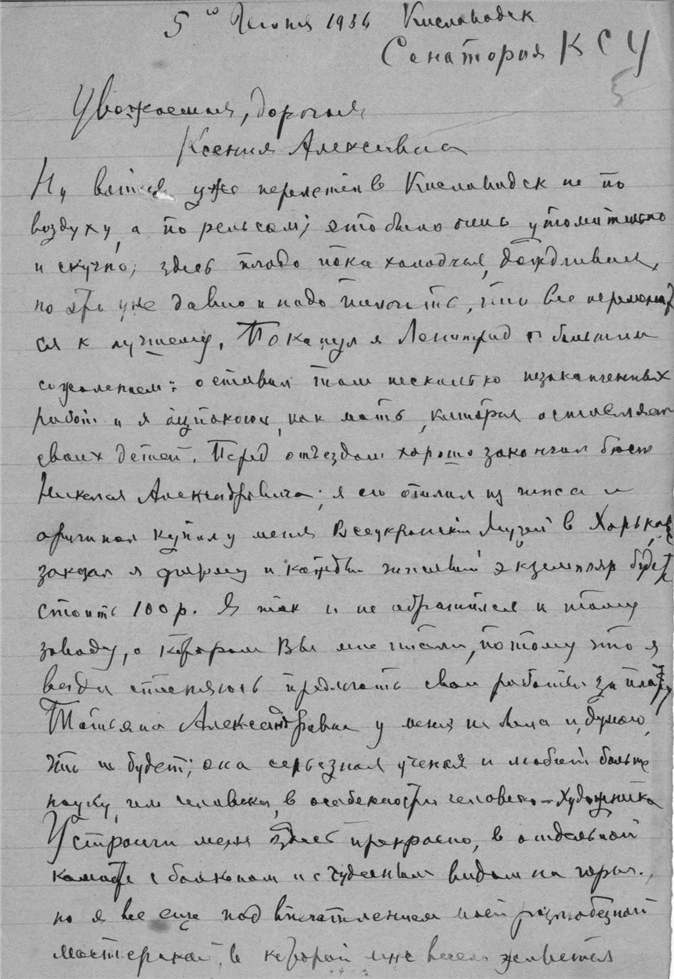 5го Июня 1936 Кисловодск
Санатория КСУ
5
Уважаемая, дорогая
Ксения Алексеевна
Ну вот я уже перелетел в Кисловодск не по
воздуху, а по рельсам; это было очень утомительно
и скучно; здесь пока холодная, дождливая,
но это уже давно и надо что все переменит
ся к лучшему. Покинул я Ленинград с большим
сожалением: оставил там несколько незаконченных
работ и я как мать, которая оставляет
своих детей. Перед отъездом хорошо закончил бюст
Николая Александровича; я его отлил из гипса и
оригинал купил у меня Всеукраинский Музей в Харькове
заказал я форму и каждый гипсовый экземпляр будет
стоить 100 р. Я так и не обратился к тому
заводу, о котором Вы мне писали, потому что я
всегда стесняюсь предлагать свои работы за плату
Татьяна Александровна у меня не была и, думаю,
что не будет; она серьезная ученая и любит больше
науку, чем человека, в особенности человека-художника
Устроили меня здесь прекрасно, в отдельной
комнате с балконом и с чудесным видом на горы.,
но я все еще под впечатлением моей
мастерской, в которой мне весело живется